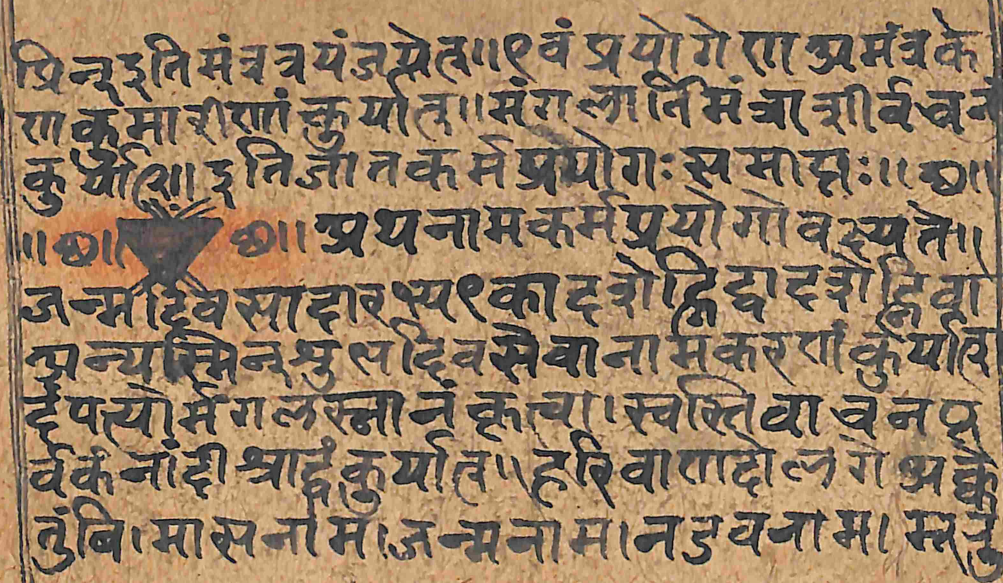 प्रिन् इति मंत्रत्रयं जपेत्॥ एवं प्रयोगेण अमंत्रके
ण कुमारीणां कुर्यात्॥ मंगलार्तिमंत्राशीर्वचनं
कुर्यात्॥ इति जातकर्मप्रयोगः समाप्तः॥ छ॥
॥ छ॥ छ॥ अथ नामकर्मप्रयोगो वक्ष्यते॥
जन्मदिवसादारभ्य एकादशेह्नि द्वादशेह्नि वा
अन्यस्मिन् शुभदिवसे वा नामकरणं कुर्यात्
दंपत्यो मंगलस्नानं कृत्वा। स्वस्तिवाचनपू
र्वकं नांदीश्राद्धं कुर्यात्॥ हरिवाणादौ
मासनाम। जन्मनाम।